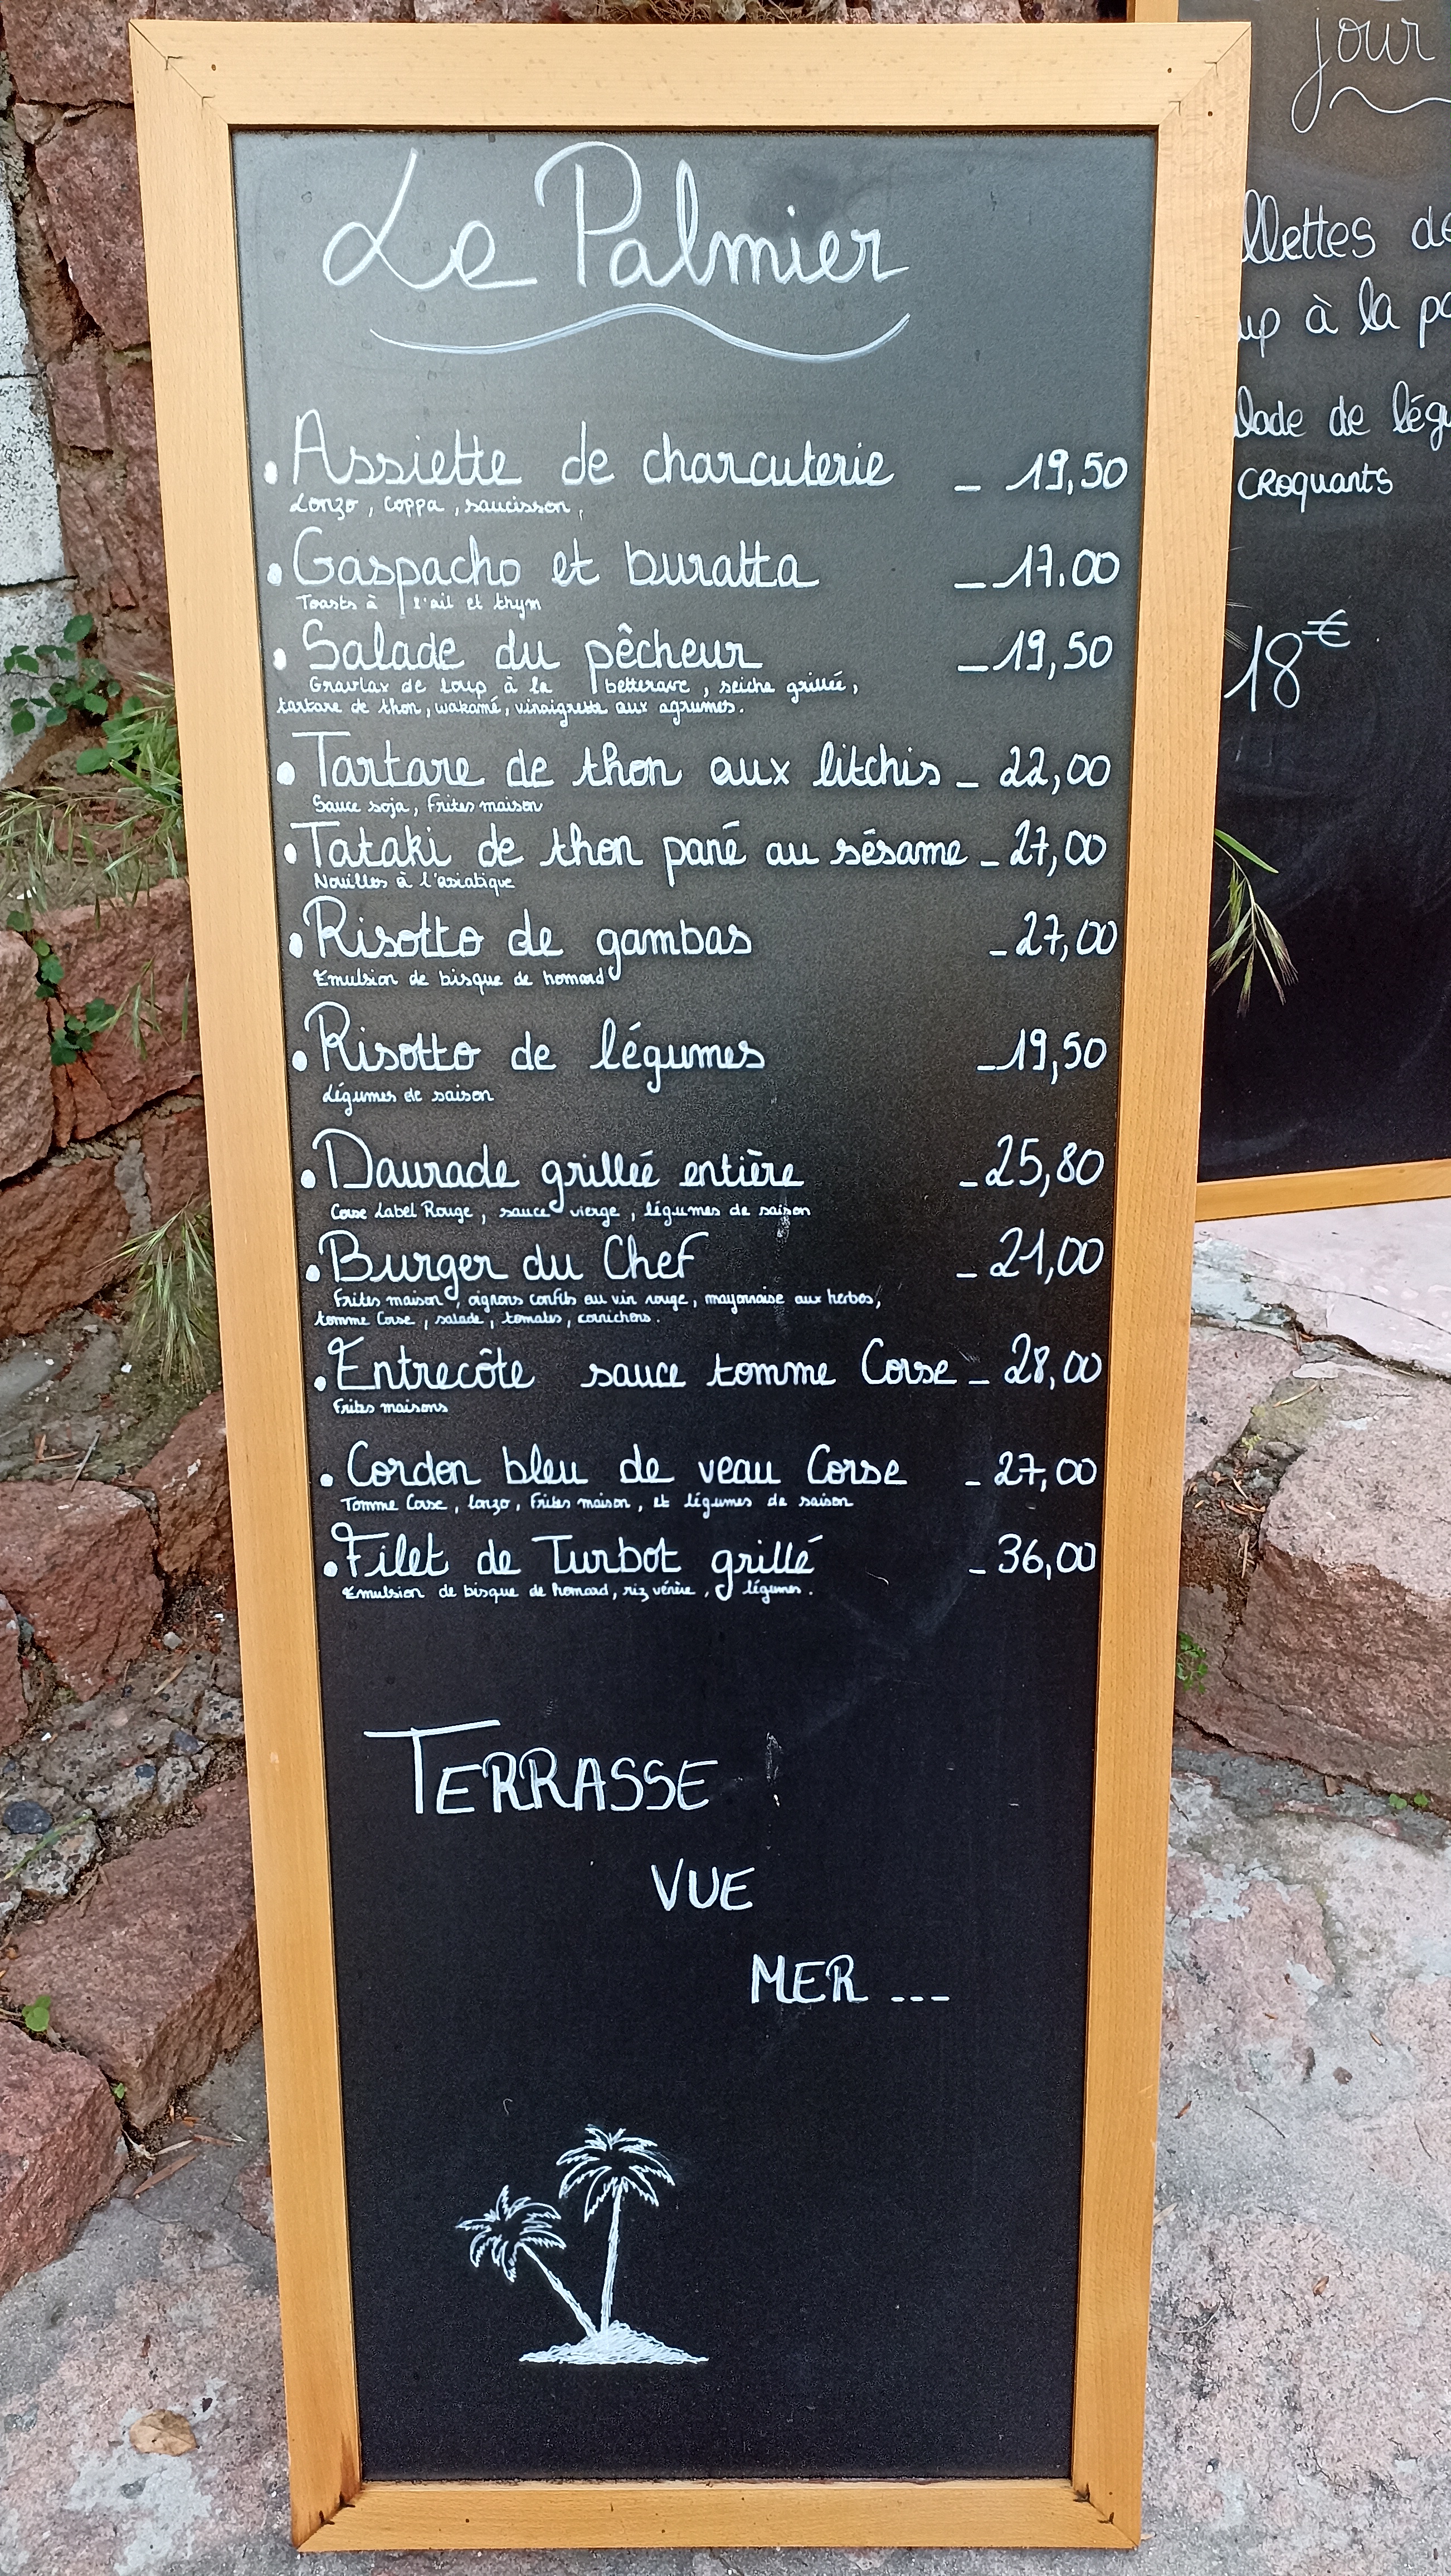 Le Palmier
• Assiette de charcuterie _ 19,50
Lonzo, Coppa, saucisson,
• Gaspacho et buratta _ 17.00
Toasts à l'ail et thym
• Salade du pêcheur _ 19,50
Gravlax de loup à la betterave, seiche grillée,
tartare de thon, wakamé, vinaigrette aux agrumes.
• Tartare de thon aux litchis _ 22,00
Sauce soja, Frites maison
• Tataki de thon pané au sésame _ 27,00
Nouilles à l'asiatique
• Risotto de gambas _ 27,00
Emulsion de bisque de homard
• Risotto de légumes _ 19,50
Légumes de saison
• Daurade grillée entière _ 25,80
Corse Label Rouge, sauce vierge, légumes de saison
• Burger du Chef _ 21,00
Frites maison, oignons confits au vin rouge, mayonnaise aux herbes,
tomme Corse, salade, tomates, cornichons.
• Entrecôte sauce tomme Corse _ 28,00
Frites maisons
• Cordon bleu de veau Corse _ 27,00
Tomme Corse, lonzo, Frites maison, et légumes de saison
• Filet de Turbot grillé _ 36,00
Emulsion de bisque de homard, riz vénère, légumes.
TERRASSE
VUE
MER ...
jour
llettes de
up à la
lade de
CROquants
18€